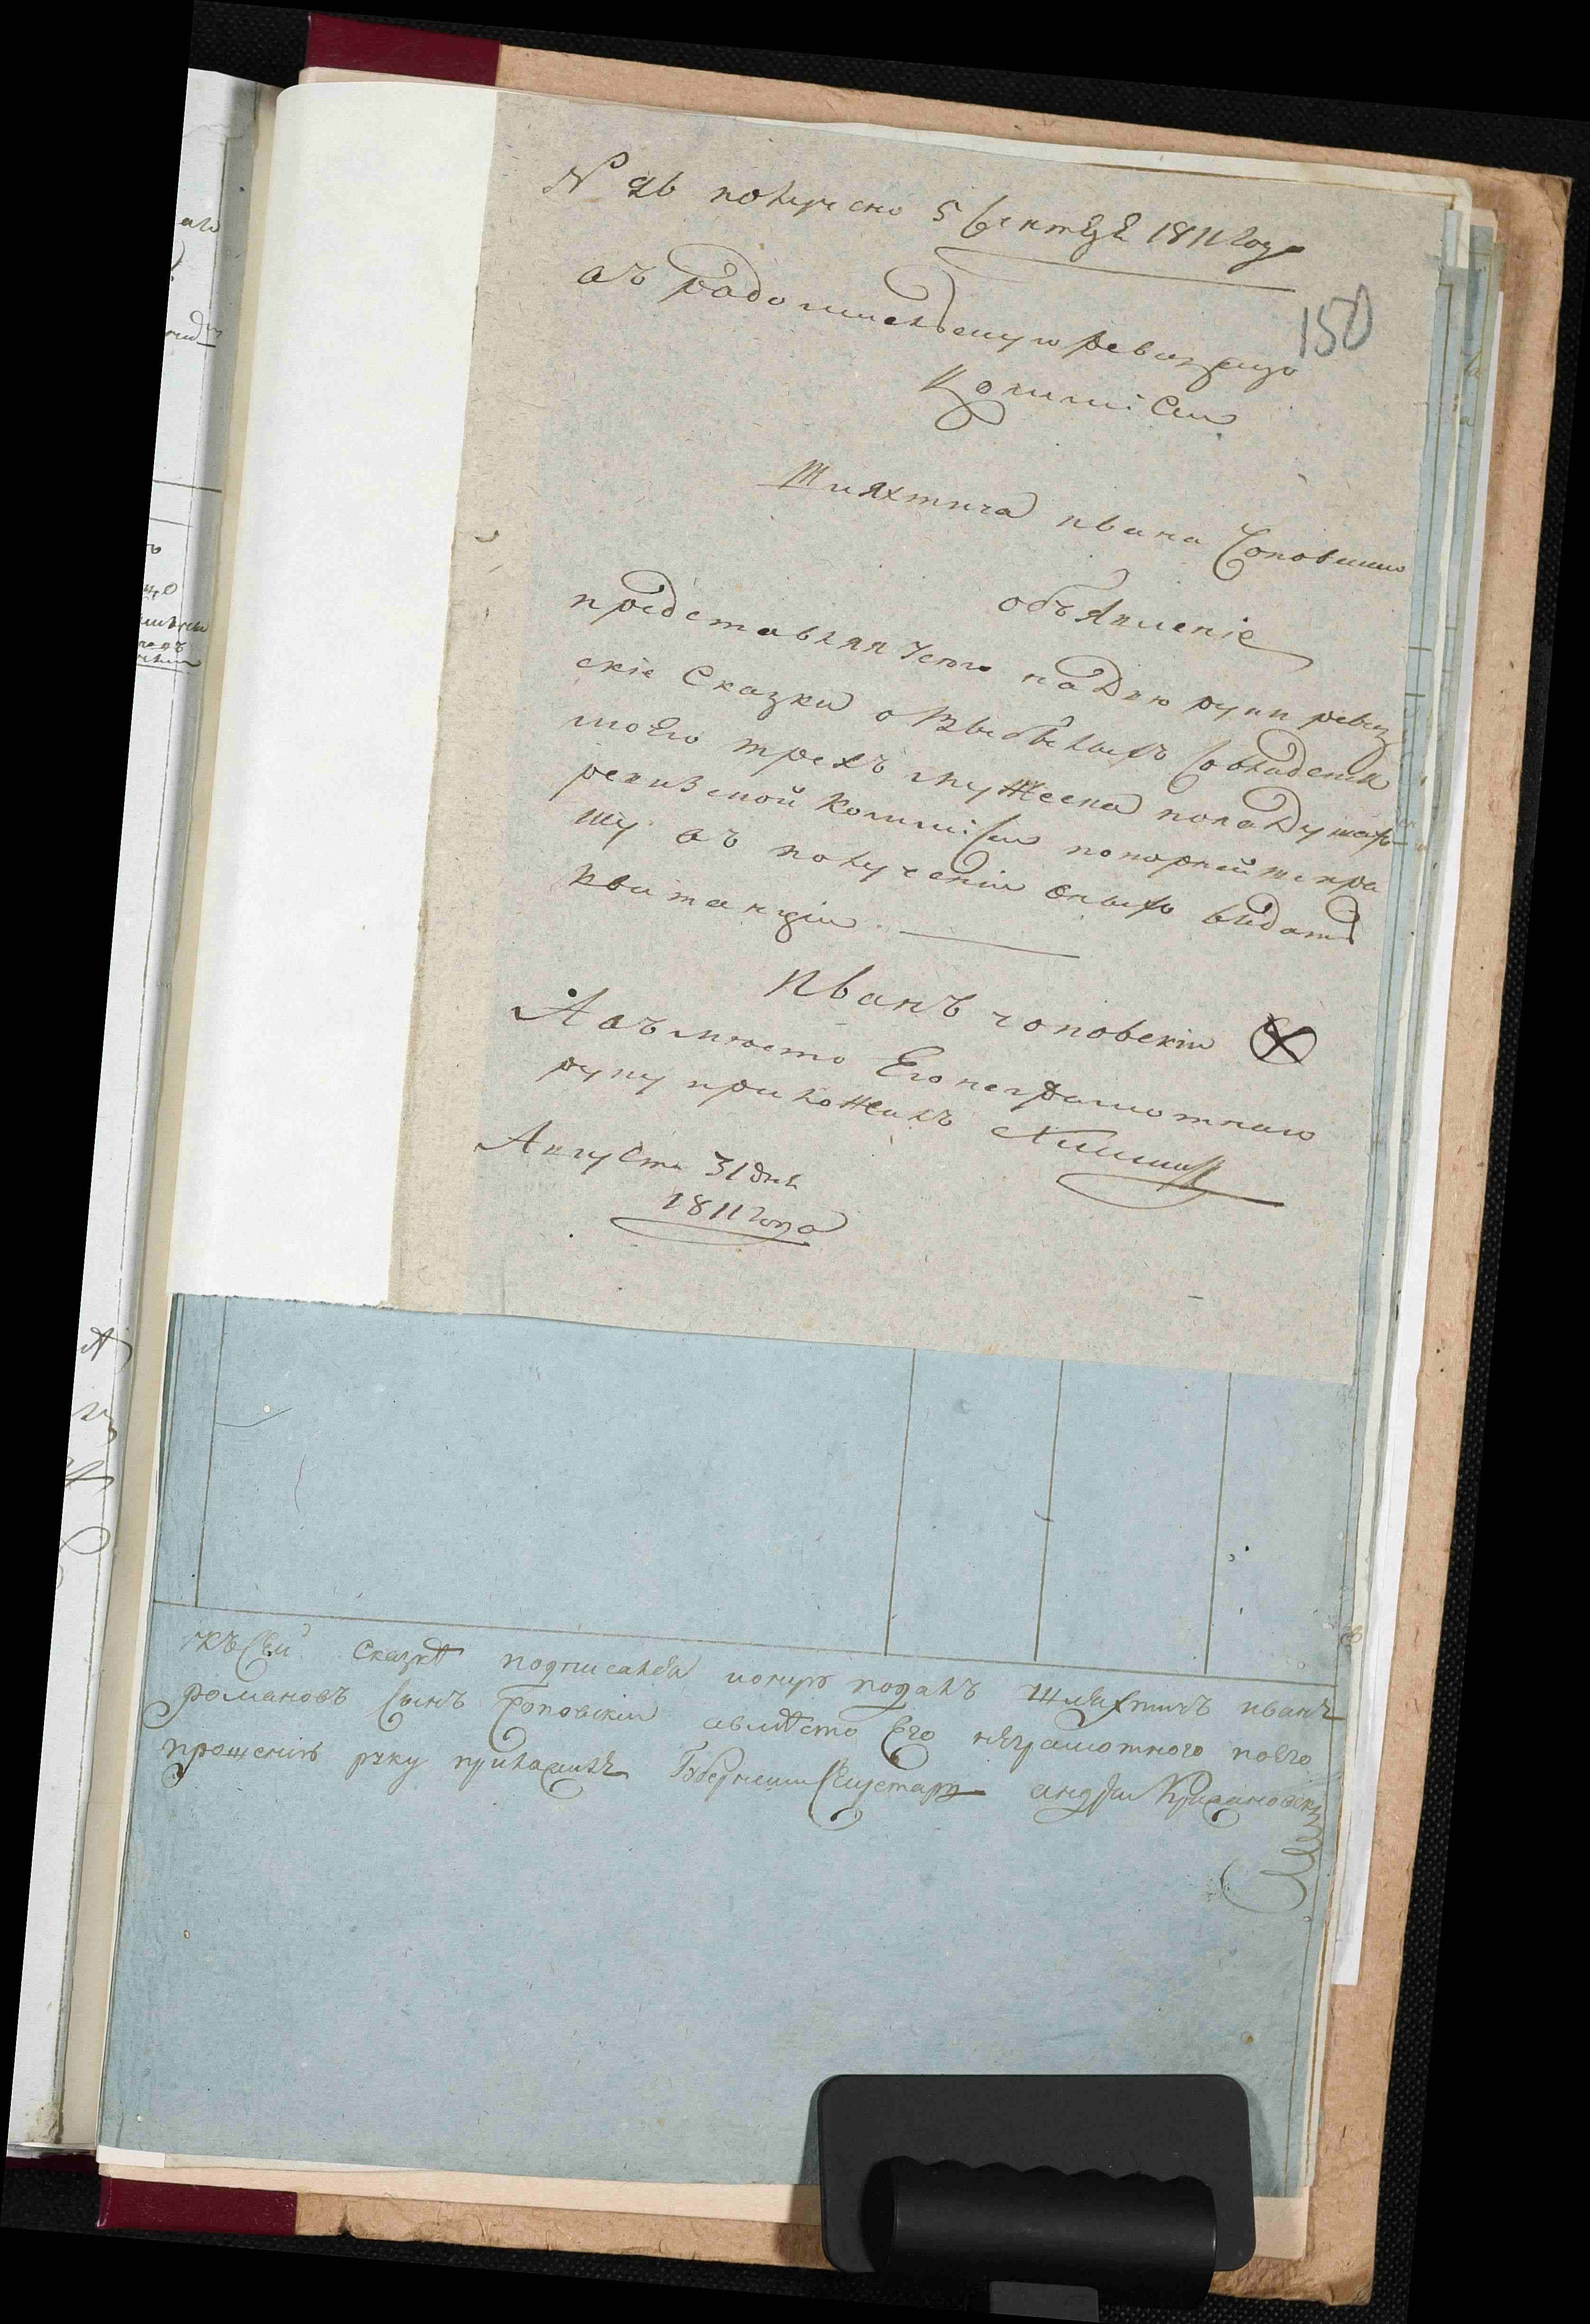 N 26 получено 5 Сентября 1811 года
150
въ радомисльскую ревизкую
Коммисию
Шляхтича ивана Чоповского
объявленіе
представляя у сего на Двю руки ревиз
скіе Сказки о В собственных
моего трехъ мужеска пола Душахъ
ревизской Коммисіи покорнейше про
шу въ получении оныхъ видать
квитанции
Иванъ чоповскіи
А въместо Его неграмотнаго
руку приложилъ
Августа 31 дня
1811 года
къ Сей Сказке подписалъся и оную подалъ шляхтичъ иванъ
романовъ сынъ Чоповскіи авместо Его неграмотного по его
прошению руку приложилъ Губернскии Секретарь андреи